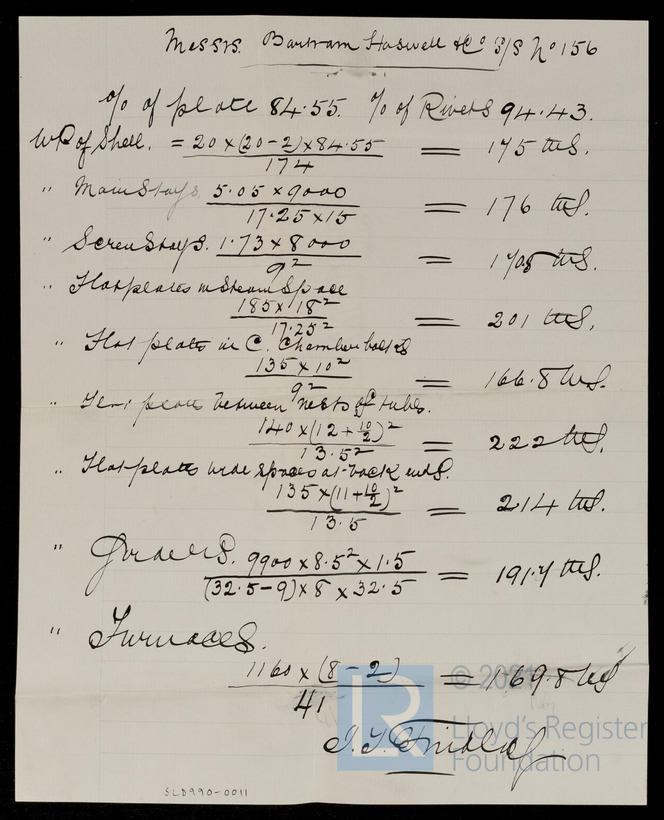 Messrs. Bartram Haswell & Co S/S No 156
% of plate 84.55. % of Rivets 94.43.
WP of Shell. = 20 x (20-2) x 84.55 / 174 = 175 lbs.
" Main Stays. 5.05 x 9000 / 17.25 x 15 = 176 lbs.
" Screw Stays. 1.73 x 8000 / 9² = 170.8 lbs.
" Flat plates in Steam Space
185 x 18² / 17.25² = 201 lbs.
" Flat plates in C. Chamber backs
135 x 10² / 9² = 166.8 lbs.
" plate between nests of tubes.
140 x (12 + 10/2)² / 13.5² = 222 lbs.
" Flat plates wide spaces at back ends.
135 x (11 + 10/2)² / 13.5 = 214 lbs.
" Girders. 9900 x 8.5² x 1.5 / (32.5-9) x 8 x 32.5 = 191.7 lbs.
" Furnaces.
1160 x (8-2) / 41 = 169.8 lbs
J. T. Findlay
© 2021
Lloyd's Register
Foundation
SLD990-0011